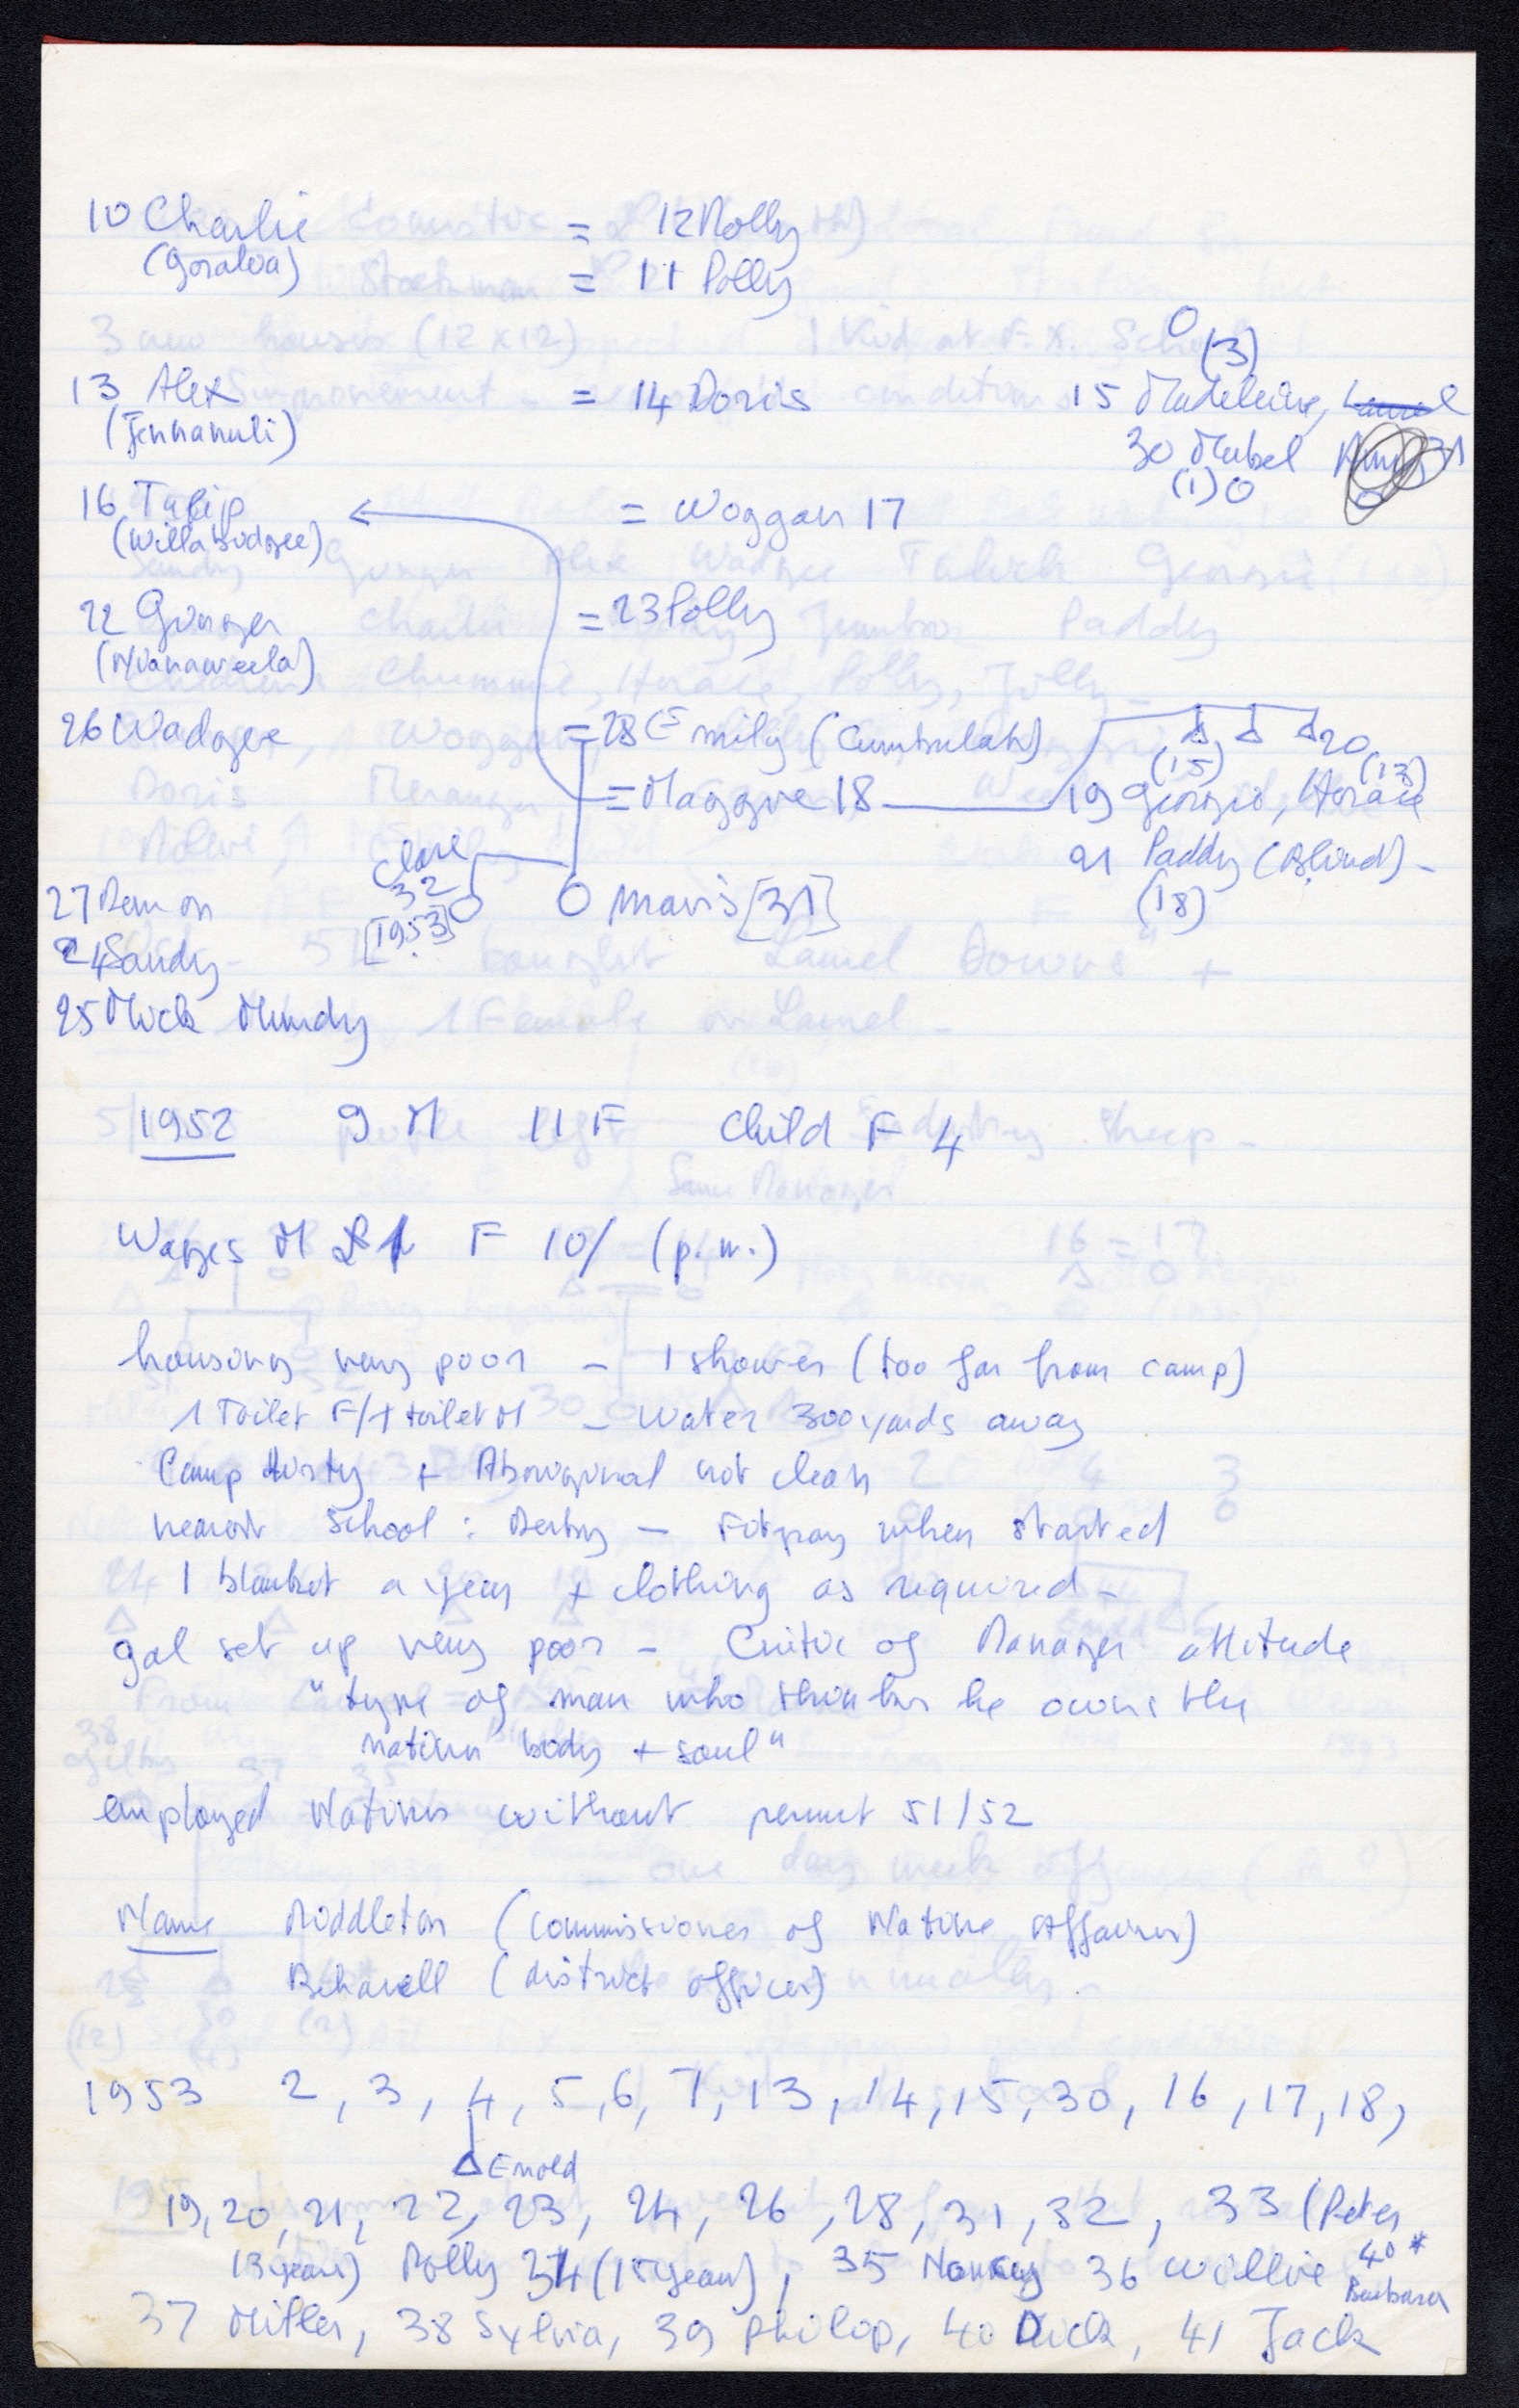 10 Charlie = 12 Molly
(Goralva) = 11 Polly
O
(3)
13 Alex = 14 Doris 15 Madeleine, Laurel
(Jennanuli) 30 Mabel 31
(1) O
16 Talip = Woggan 17
(Willabudgee)
22 Ginger = 23 Polly
(Nianaweela)
26 Wadgee = 28 Emily (Cumbulah) 20
(15) (13)
= Maggie 18 19 Georgie, Horace
Clare 21 Paddy (Blind) -
32
27 Demon [1953] O O Mavis [31] (18)
24 Sandy
25 Mick Mundy
1952 9 M 11 F Child F 4
Wages M £1 F 10/ (p.w.)
housing very poor - 1 shower (too far from camp)
1 Toilet F/1 toilet M - Water 300 yards away
Camp dirty + Aboriginal not clean
nearest School : Derby - Fitzroy when started
1 blanket a year + clothing as required -
gal set up very poor - Critic of Manager attitude
"type of man who thinks he owns the
native body + soul"
employed Natives without permit 51/52
Name Middleton (Commissioner of Native Affairs)
Beharell (district officer)
1953 2, 3, 4, 5, 6, 7, 13, 14, 15, 30, 16, 17, 18,
Δ Enold
19, 20, 21, 22, 23, 24, 26, 28, 31, 32, 33 (Peter
13 years) Dolly 34 (15 years), 35 Nancy 36 Willie 40*
Barbara
37 Mitler, 38 Sylvia, 39 Philip, 40 Dick, 41 Jack